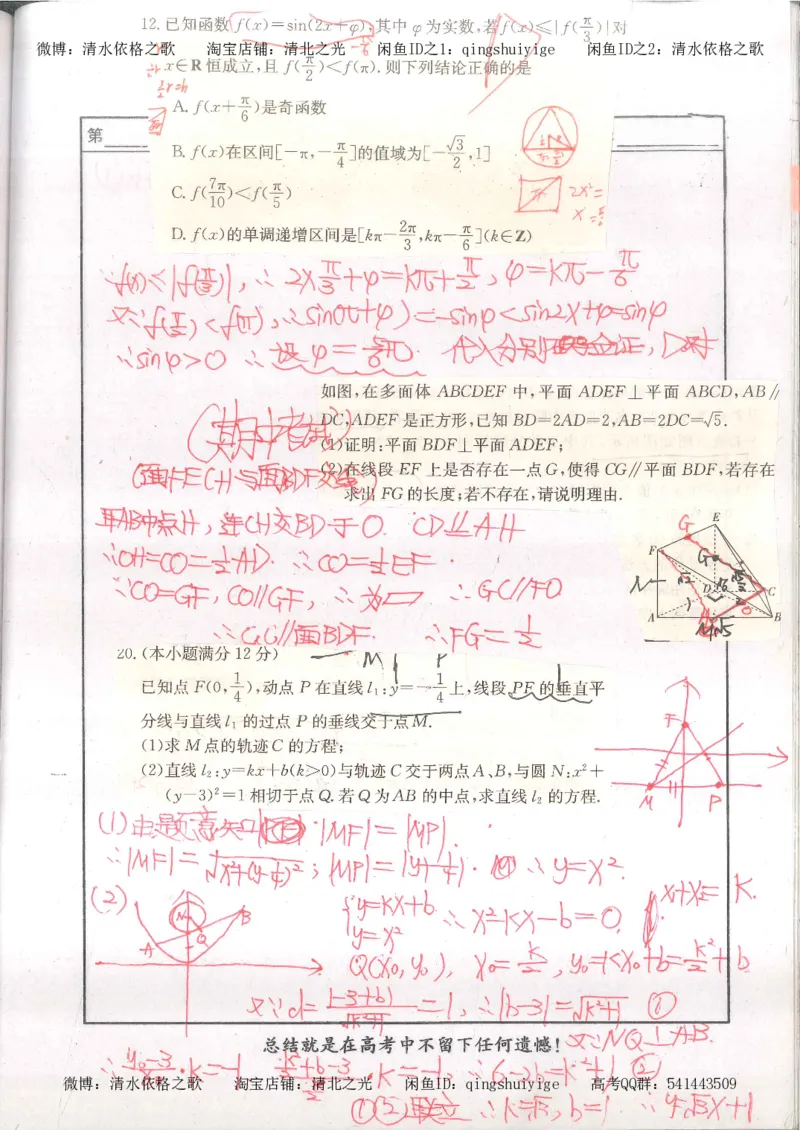 12.已知函数 f(x)=sin(2x+φ),其中 φ为实数,若 f(x)≤|f(π/3)|对
微博：清水依格之歌 淘宝店铺：清北之光 闲鱼ID之1：qingshuiyige 闲鱼ID之2：清水依格之歌
x∈R 恒成立,且 f(π/2)<f(π).则下列结论正确的是
A. f(x+π/6)是奇函数
第
B. f(x)在区间[-π,-π/4]的值域为[-√3/2,1]
C. f(7π/10)<f(π/5)
D. f(x)的单调递增区间是[kπ-2π/3,kπ-π/6](k∈Z)
∵f(x)≤|f(π/3)|,∴2×π/3+φ=kπ+π/2,φ=kπ-π/6
又∵f(π/2)<f(π),∴sin(π+φ)=-sinφ<sin2π+φ=sinφ
∵sinφ>0 ∴设φ=5/6π. 代入分别验证,D对
如图,在多面体 ABCDEF 中,平面 ADEF⊥平面 ABCD,AB∥
DC,ADEF 是正方形,已知 BD=2AD=2,AB=2DC=√5.
(期中考试)
(1)证明:平面 BDF⊥平面 ADEF;
(2)在线段 EF 上是否存在一点 G,使得 CG∥平面 BDF,若存在
求出 FG 的长度;若不存在,请说明理由.
(面FECH与面BDF交线)
取AB中点H,连CH交BD于O. CD∥AH
∵OH=CO=1/2AD. ∴CO=1/2EF.
∵CO=GF,CO∥GF,∴为▱ ∴GC∥FO
∴CG∥面BDF. ∴FG=1/2
20.(本小题满分 12 分)
已知点 F(0,1/4),动点 P 在直线 l₁:y=-1/4上,线段 PF 的垂直平
分线与直线 l₁ 的过点 P 的垂线交于点 M.
(1)求 M 点的轨迹 C 的方程;
(2)直线 l₂:y=kx+b(k>0)与轨迹 C 交于两点 A、B,与圆 N:x²+
(y-3)²=1 相切于点 Q.若 Q 为 AB 的中点,求直线 l₂ 的方程.
(1)由题意知 |MF|=|MP|.
∴|MF|=√x²+(y-1/4)²;|MP|=|y+1/4|. ∴y=x².
(2) {y=kx+b y=x² ∴x²-kx-b=0. x₁+x₂=k.
Q(x₀,y₀), x₀=k/2,y₀=kx₀+b=k²/2+b
又∵d=|-3+b|/√k²+1=1,∴|b-3|=√k²+1 ①
总结就是在高考中不留下任何遗憾！
又∵NQ⊥AB.
∴y₀-3/x₀·k=-1 k²/2+b-3/k/2·k=-1,∴6-2b=k²+1 ②
微博：清水依格之歌 淘宝店铺：清北之光 闲鱼ID：qingshuiyige 高考QQ群：541443509
①②联立 ∴k=√3,b=1 ∴y=√3x+1